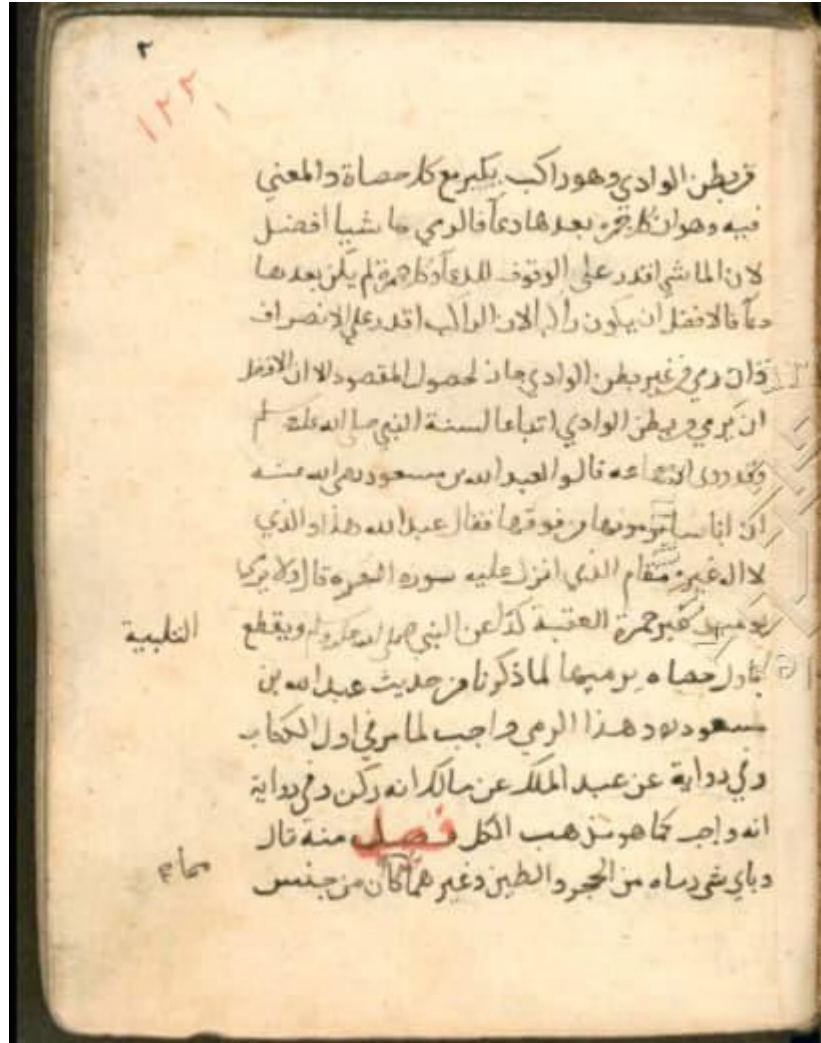 ٢
١٢٢
من بطن الوادي وهو راكب يكبر مع كل حصاة والمعني
فيه وهو ان كل جمرة بعدها دعآ فالرمي ماشيا افضل
لان الماشي اقدر على الوقوف للدعآ وكل جمرة لم يكن بعدها
دعآ فالافضل ان يكون راكبا لان الراكب اقدر علي الانصراف
فان رمي من غير بطن الوادي جاز لحصول المقصود الا ان الافضل
ان يرمي من بطن الوادي اتباعا لسنة النبي صلى الله عليه سلم
وقد روى قالوا لعبد الله بن مسعود رضى الله عنه
ان اناسا يرمونها من فوقها فقال عبد الله هذا والذي
لا اله غيره مقام الذي انزل عليه سوره البقره قال ولا يرمي
يوميذ غير جمرة العقبة كذا عن النبي صلى الله عليه وسلم ويقطع
التلبية
باول حصاه يرميها لما ذكرنا من حديث عبد الله بن
مسعود وهذا الرمي واجب لما مر في اول الكتاب
وفي رواية عن عبد الملك عن مالك انه ركن وفي رواية
انه واجب كما هو مذهب الكل فصل منه قال
وباي شي رماه من الحجر والطين وغير هما كان من جنس